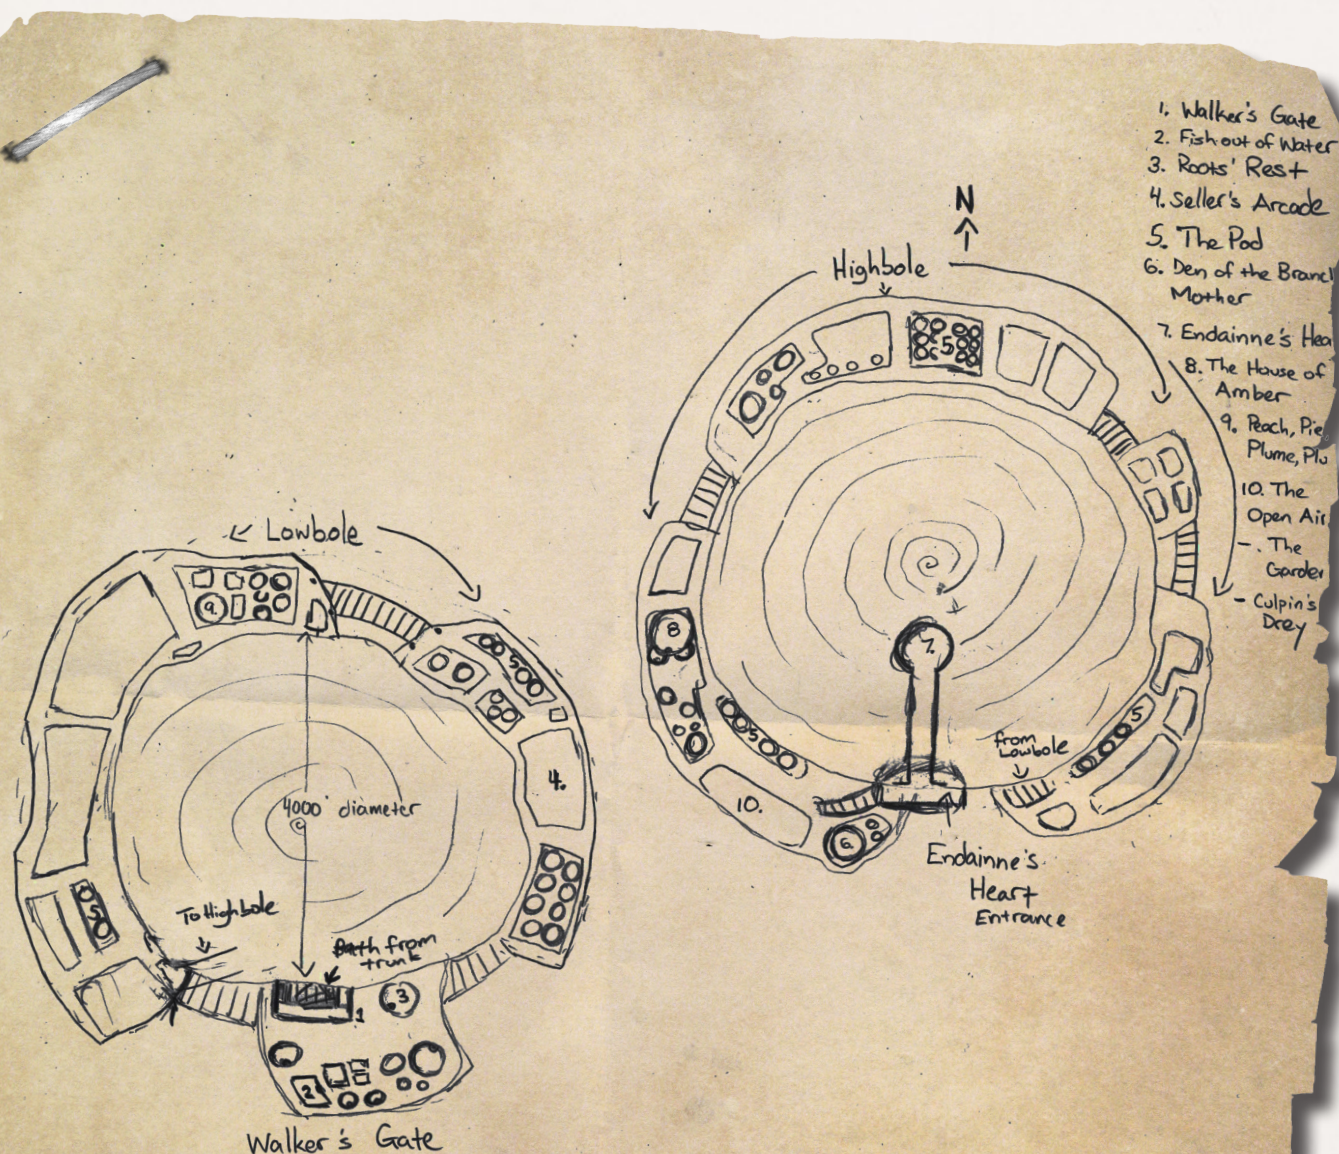 1. Walker's Gate
2. Fish out of Water
3. Roots' Rest
4. Seller's Arcade
5. The Pod
6. Den of the Branch
Mother
7. Endainne's Hea
8. The House of
Amber
9. Peach, Pie
Plume, Plu
10. The
Open Air
-. The
Garden
- Culpin's
Drey
N
Highbole
5
8
7.
5
5
from
Lowbole
10.
6.
Endainne's
Heart
Entrance
Lowbole
9.
5
4.
4000' diameter
5
To Highbole
Path from
trunk
3
1
2
Walker's Gate